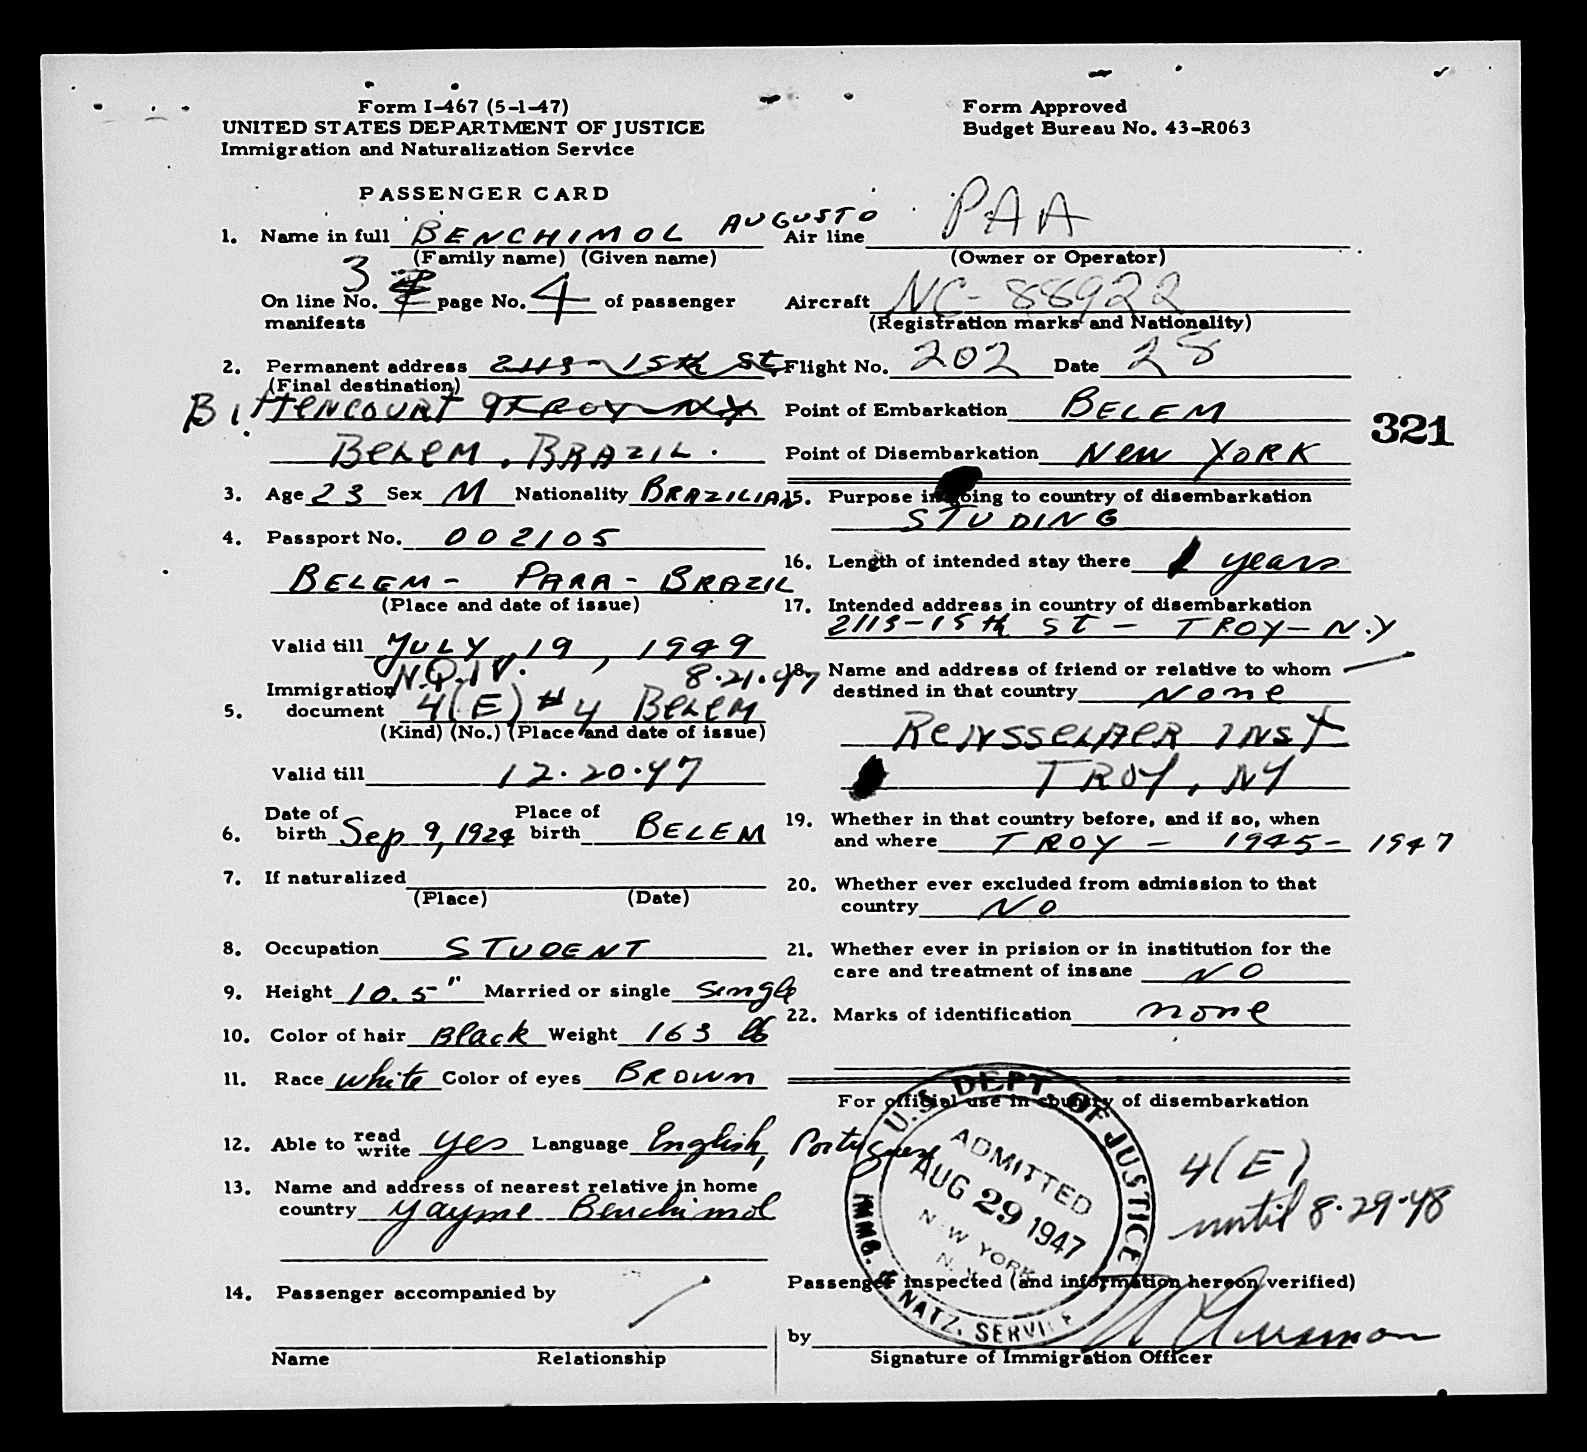 Form I-467 (5-1-47)
UNITED STATES DEPARTMENT OF JUSTICE
Immigration and Naturalization Service
Form Approved
Budget Bureau No. 43-R063
PASSENGER CARD
1. Name in full BENCHIMOL AUGUSTO
(Family name) (Given name)
On line No. 3 page No. 4 of passenger
manifests
2. Permanent address 2113-15th St.
(Final destination)
TROY N.Y.
BITTENCOURT 9
BELEM, BRAZIL.
3. Age 23 Sex M Nationality BRAZILIAN
4. Passport No. 002105
BELEM - PARA - BRAZIL
(Place and date of issue)
Valid till JULY, 19, 1949
N.Q.I.V. 8.21.47
Immigration
5. document 4(E) #4 BELEM
(Kind) (No.) (Place and date of issue)
Valid till 12.20.47
Date of Place of
6. birth Sep 9, 1924 birth BELEM
7. If naturalized
(Place) (Date)
8. Occupation STUDENT
9. Height 10.5" Married or single Single
10. Color of hair Black Weight 163 lb
11. Race white Color of eyes BROWN
12. Able to read write yes Language English, Portuguese
13. Name and address of nearest relative in home
country Yayme Benchimol
14. Passenger accompanied by
Name Relationship
Air line PAA
(Owner or Operator)
Aircraft NC-88922
(Registration marks and Nationality)
Flight No. 202 Date 28
Point of Embarkation BELEM
Point of Disembarkation NEW YORK
321
15. Purpose in going to country of disembarkation
STUDING
16. Length of intended stay there years
17. Intended address in country of disembarkation
2113-15th ST - TROY - N.Y
18. Name and address of friend or relative to whom
destined in that country None
RENSSELAER INST
TROY, NY
19. Whether in that country before, and if so, when
and where TROY - 1945 - 1947
20. Whether ever excluded from admission to that
country NO
21. Whether ever in prision or in institution for the
care and treatment of insane NO
22. Marks of identification none
For official use in country of disembarkation
U.S. DEPT. OF JUSTICE
ADMITTED
AUG 29 1947
NEW YORK
N.Y.
IMMG. & NATZ. SERVICE
4(E)
until 8-29-48
Passenger inspected (and information hereon verified)
by
Signature of Immigration Officer